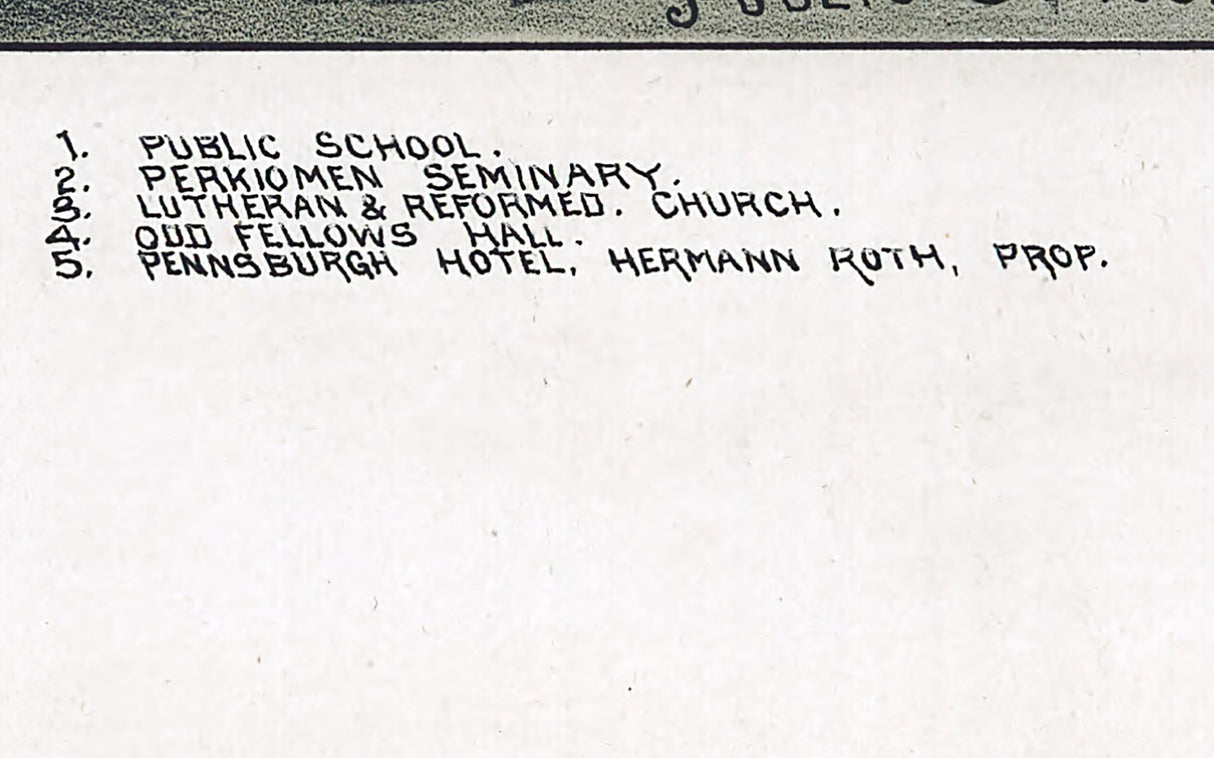 1. PUBLIC SCHOOL.
2. PERKIOMEN SEMINARY.
3. LUTHERAN & REFORMED. CHURCH.
4. ODD FELLOWS HALL.
5. PENNSBURGH HOTEL, HERMANN ROTH, PROP.